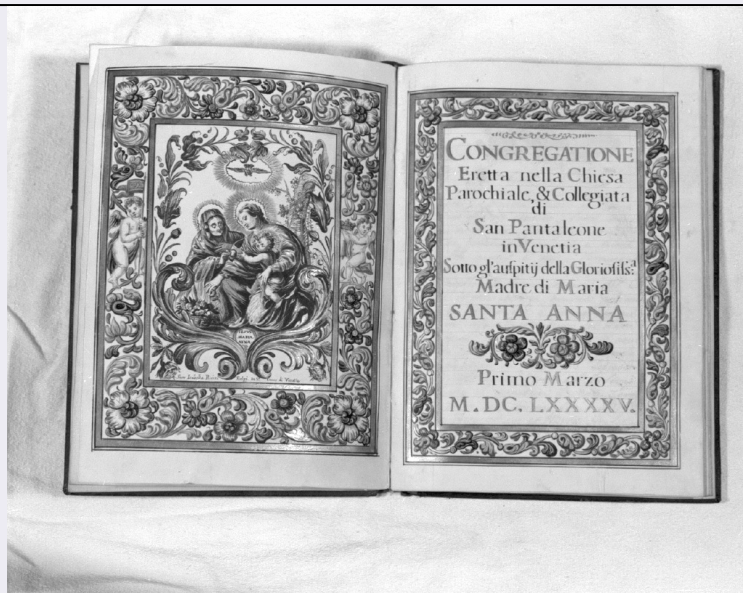 CONGREGATIONE
Eretta nella Chiesa
Parochiale, & Collegiata
di
San Pantaleone
in Venetia
Sotto gl'auſpitij della Glorioſiſs.ª
Madre di Maria
SANTA ANNA
Primo Marzo
M. DC. LXXXXV.